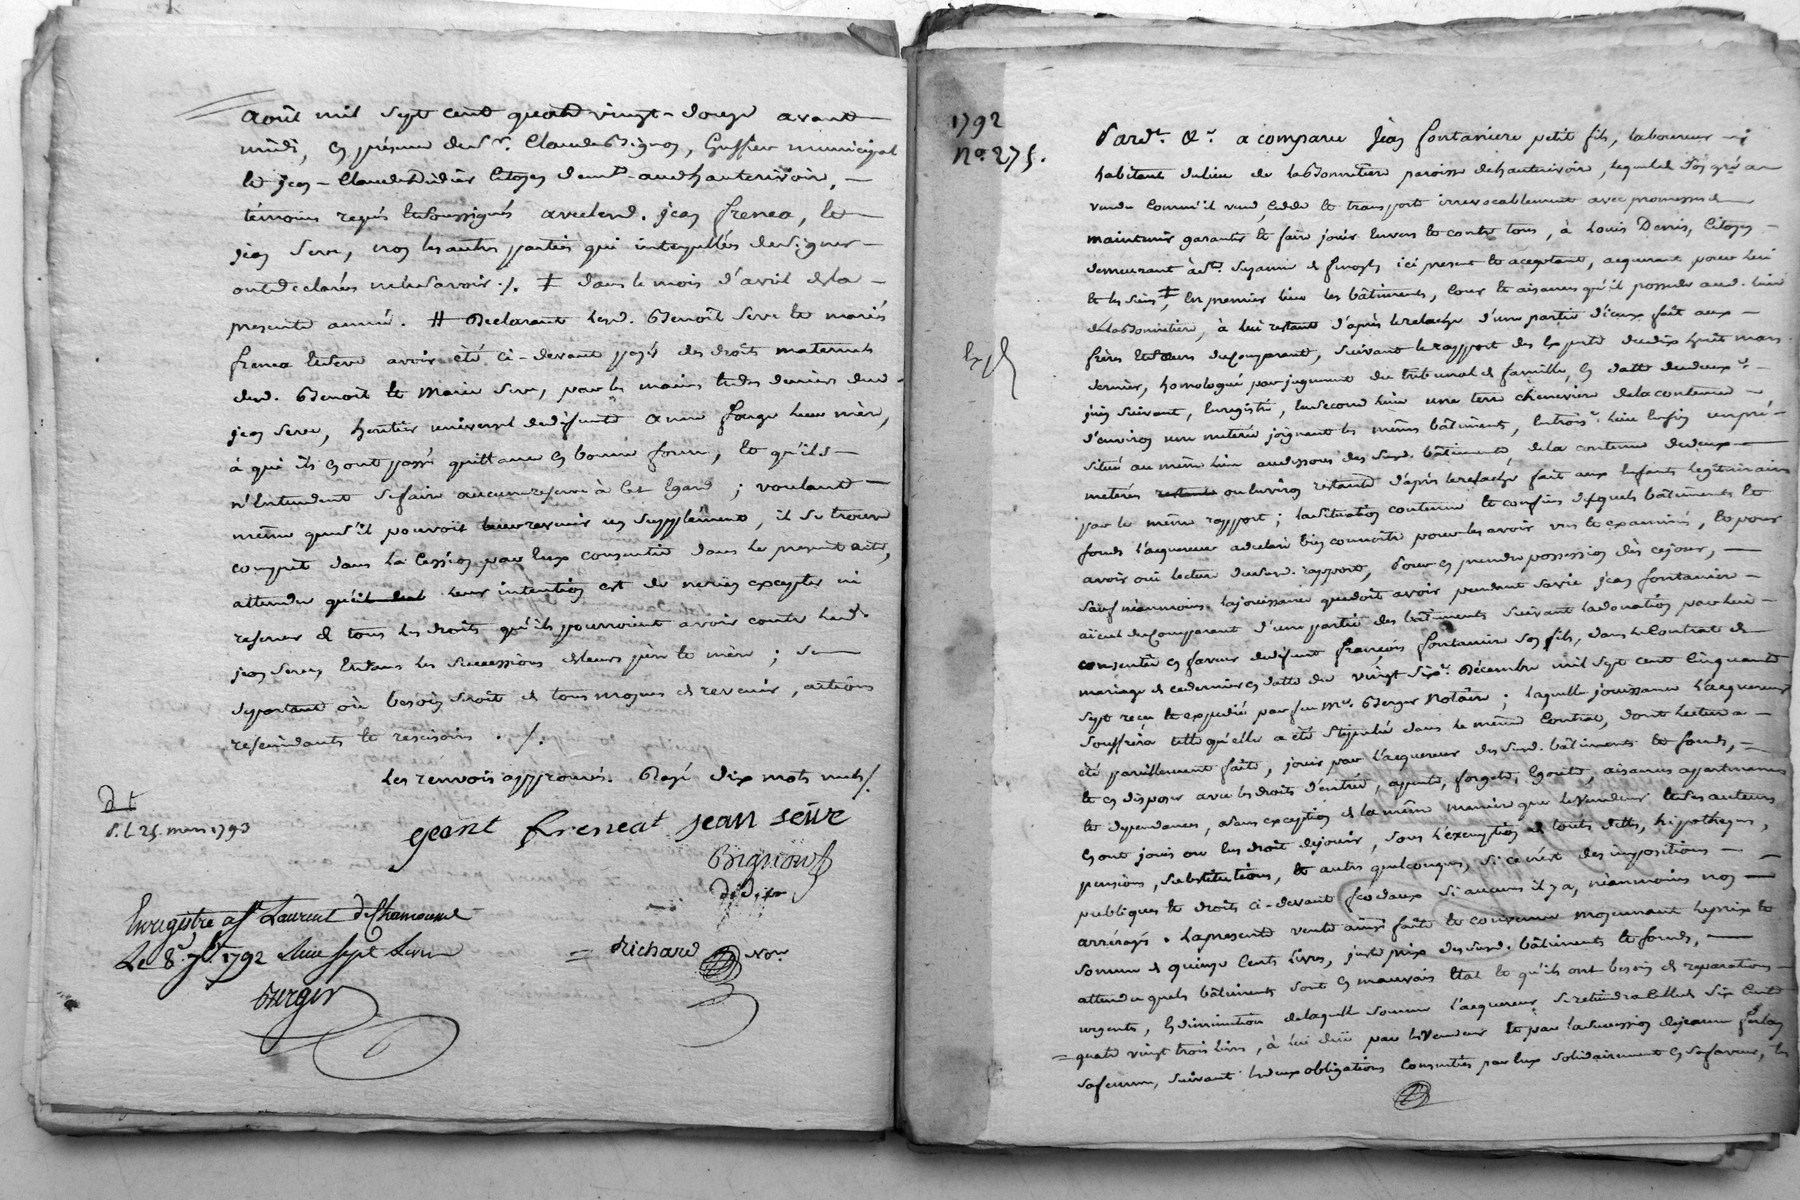 août mil sept cent quatre vingt-douze avant
midi, en présence de Sr. Claude Bignon, Greffier municipal
et jean-Claude Didier Citoyen demt. aud hauterivoir,
témoins requis et soussignés avec led. jean freneat, et
jean Serve, non les autres parties qui interpellées de signer
ont déclarés ne le savoir ./. ǂ dans le mois d'avril de la
presente année. # Declarant lesd. Benoît Serve et mariés
frenea et Serve avoir été ci-devant payés des droits maternels
desd. Benoit et Marie Serve, par les mains et des deniers dud.
jean Serve, heritier universel de défunte anne leur mère,
à qui ils en ont passé quittance en bonne forme, et qu'ils
n'Entendent se faire aucune reserve à cet Egard ; voulant
même que s'il pouvoit leur revenir un supplément, il se trouve
compris dans la cession par Eux consentie dans le present acte,
attendu que leur intention est de ne rien excepter ni
reserver de tous les droits qu'ils pourroient avoir contre led.
jean Serve Et dans les successions de leurs père et mère ; se
départant où besoin seroit de tous moyens de revenir, actions
rescindants et rescisoirs ./.
les renvois approuvés. Rayé dix mots nuls /.
geant freneat jean seive
Bignon
didier
d t
d. l. 25. mars 1793
Enregistré a St Laurent de Chamousset
Le 8. 7bre 1792 sept Livres
Richard Nore.
1792
No. 275.
Exp
Pardt. &c. a comparu Jean fontaniere petit fils, laboureur
habitant du lieu de la Bonnetiere paroisse de hauterivoir, lequel de son gré a
vendu comme il vend, cede et transporte irrevocablement avec promesse de
maintenir garantir et faire jouir Envers et contre tous, à Louis Denis, Citoyen
demeurant à ici present et acceptant, acquerant pour lui
et les siens, ǂ En premier lieu les bâtiments, cour et aisances qu'il possede aud. lieu
de la Bonnetiere, à lui restant d'après le relache d'une partie d'iceux fait aux
frères et sœurs du comparant, suivant le rapport des Experts du dix huit mars
dernier, homologué par jugement du tribunal de famille, en datte du deux
juin suivant, Enregistré, En second lieu une terre cheneviere de la contenue
d'environ une meterée joignant les mêmes bâtiments, En trois. lieu Enfin un pré
situé au même lieu au dessous des susd. bâtiments, de la contenue de deux
meterées ou Environ restante d'après le relaché fait aux Enfants legitimaires
par le même rapport ; la situation contenue et confins desquels bâtiments et
fonds l'acquereur a déclaré bien connoitre pour les avoir vus et examinés, Et pour
avoir oui lecture du susd. rapport, Pour en prendre possession dès ce jour,
sauf néanmoins la jouissance que doit avoir pendant sa vie jean fontaniere
aïeul du comparant d'une partie des bâtiments suivant la donation par lui
consentie en faveur de défunt françois fontaniere son fils, dans le Contrat de
mariage de ce dernier en datte du vingt six. Décembre mil sept cent cinquante
sept reçu et expedié par feu Me. Berger Notaire ; laquelle jouissance l'acquereur
souffrira telle qu'elle a été stipulée dans le même Contrat, dont lecture a
été pareillement faite, jouir par l'acquereur des susd. bâtiments et fonds,
et en disposer avec les droits d'entrée, Egouts, aisances appartenances
et dependances, sans exception de la même manier que le vendeur et ses auteurs
En ont joui ou Eu droit de jouir, sous l'exemption de touts dettes, hipotheques,
pensions, substitutions, et autres quelconques, si ce n'est des impositions
publiques et droits ci-devant féodaux si aucuns il y a, néanmoins non
arréragés. La presente vente ainsi faite et convenue moyennant le prix et
somme de quinze Cents Livres, juste prix des susd. bâtiments et fonds,
attendu que les bâtiments sont En mauvais Etat et qu'ils ont besoin de reparations
urgents, En diminution de laquelle somme l'acquereur se retiendra celle de six Cents
quatre vingt trois livres, à lui dûe par le Vendeur et par la succession de jeanne
sa femme, suivant les deux obligations consenties par Eux solidairement en sa faveur, les